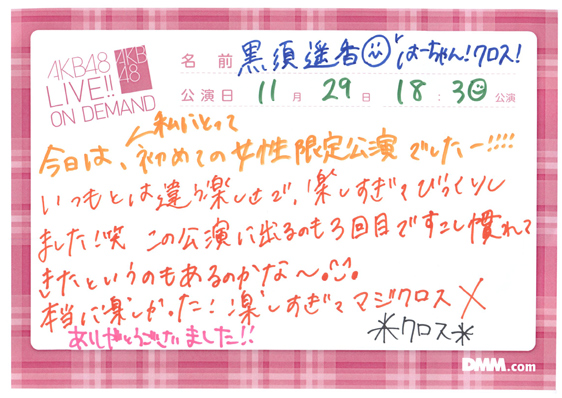 AKB48
LIVE!!
ON DEMAND
AKB
48
名前 黒須遥香 はーちゃん!クロス!
公演日 11月29日 18:30公演
私にとって
今日は、初めての女性限定公演でしたー!!!!
いつもとは違う楽しさで、楽しすぎてびっくりし
ました!笑 この公演に出るのも3回目ですこし慣れて
きたというのもあるのかな〜
本当に楽しかった!楽しすぎてマジクロス
ありがとうございました!!
*クロス*
DMM.com